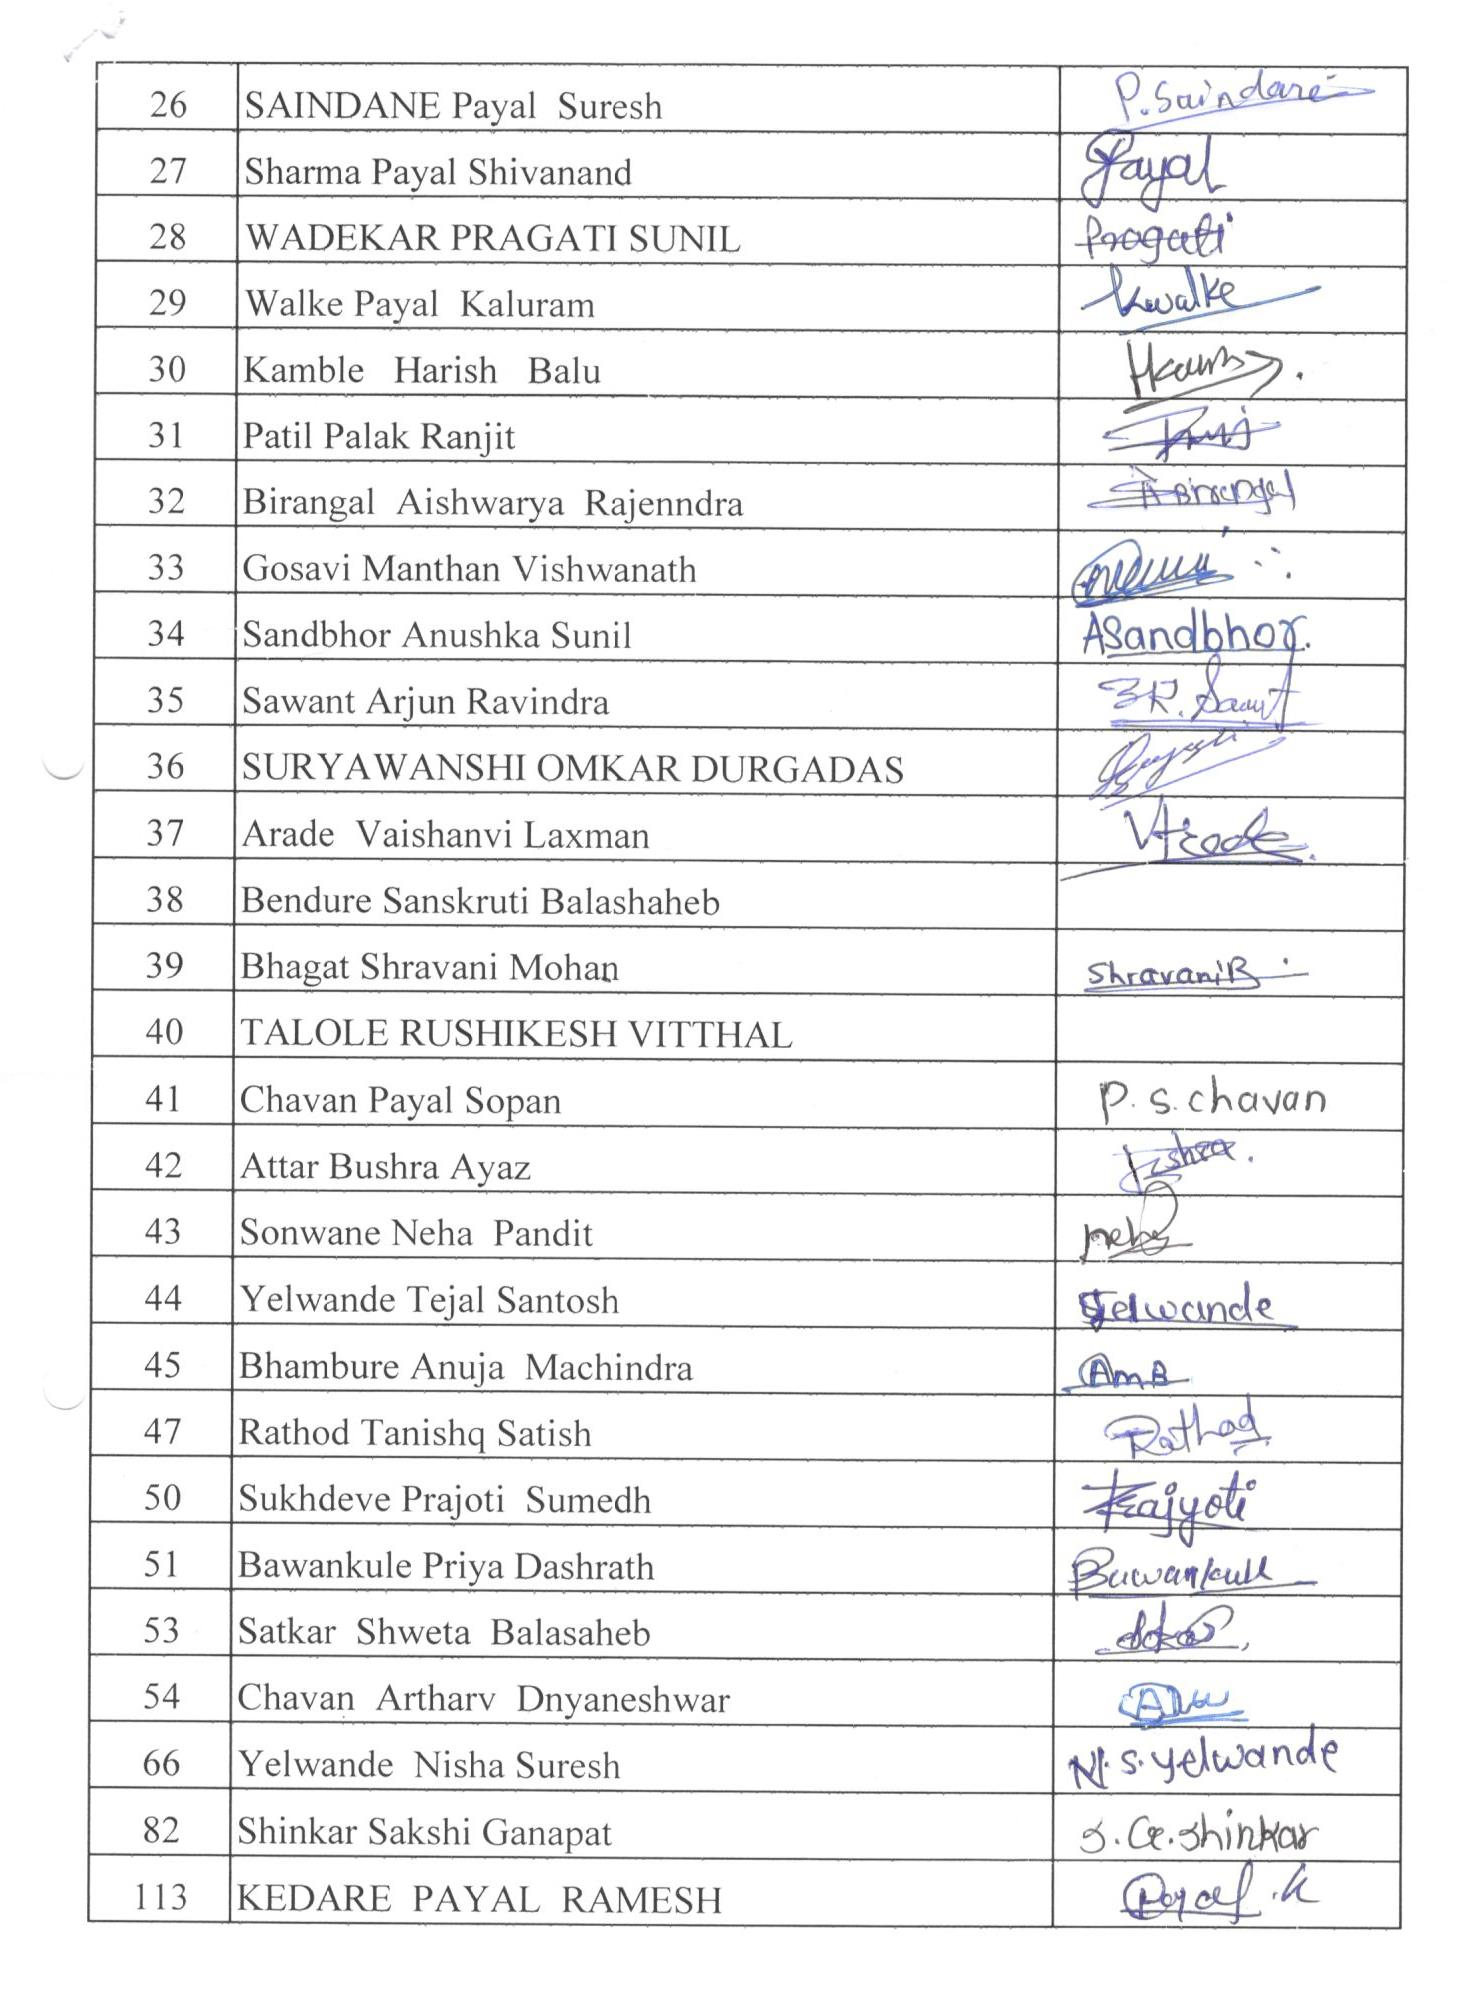 26 SAINDANE Payal Suresh P. Saindane
27 Sharma Payal Shivanand Payal
28 WADEKAR PRAGATI SUNIL Pragati
29 Walke Payal Kaluram kwalke
30 Kamble Harish Balu
31 Patil Palak Ranjit
32 Birangal Aishwarya Rajenndra A Birangal
33 Gosavi Manthan Vishwanath
34 Sandbhor Anushka Sunil ASandbhor.
35 Sawant Arjun Ravindra
36 SURYAWANSHI OMKAR DURGADAS
37 Arade Vaishanvi Laxman
38 Bendure Sanskruti Balashaheb
39 Bhagat Shravani Mohan Shravani B
40 TALOLE RUSHIKESH VITTHAL
41 Chavan Payal Sopan P. S. chavan
42 Attar Bushra Ayaz
43 Sonwane Neha Pandit neha
44 Yelwande Tejal Santosh Yelwande
45 Bhambure Anuja Machindra AMB
47 Rathod Tanishq Satish Rathod
50 Sukhdeve Prajoti Sumedh Prajyoti
51 Bawankule Priya Dashrath Bawankule
53 Satkar Shweta Balasaheb
54 Chavan Artharv Dnyaneshwar
66 Yelwande Nisha Suresh N. S. Yelwande
82 Shinkar Sakshi Ganapat S. G. Shinkar
113 KEDARE PAYAL RAMESH Payal .K